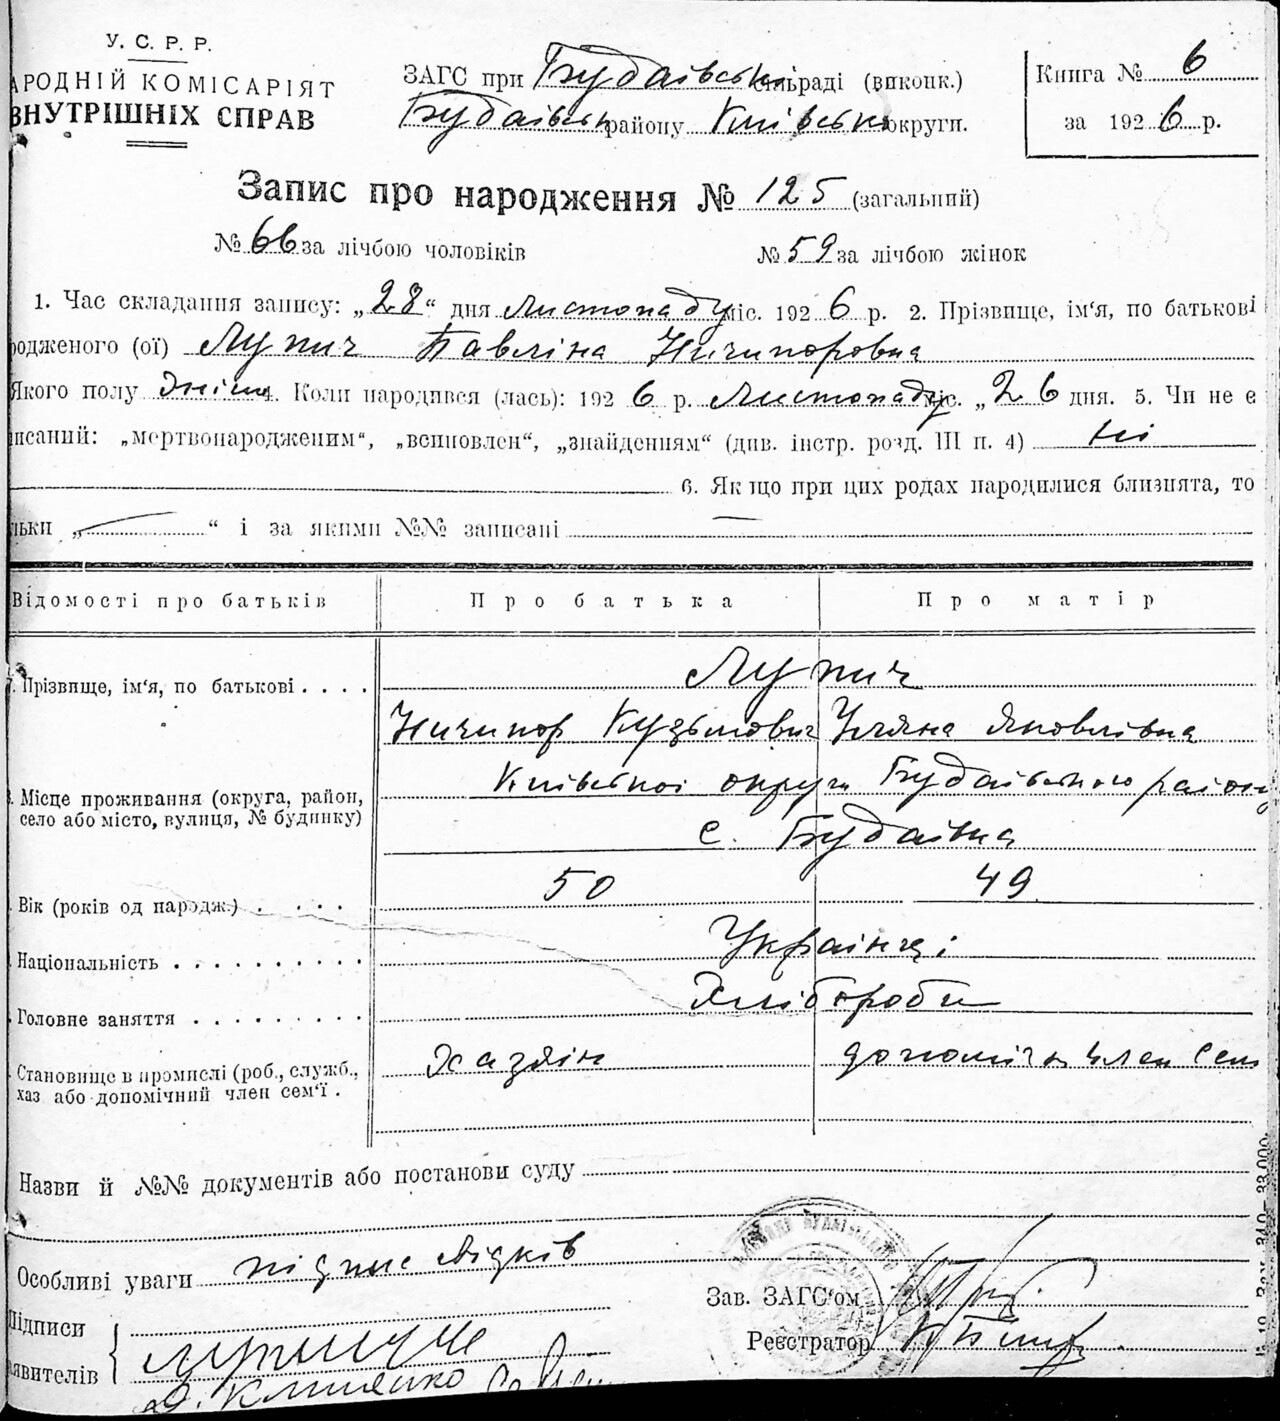 У. С. Р. Р.
АРОДНІЙ КОМІСАРІЯТ
ВНУТРІШНІХ СПРАВ
ЗАГС при Будаівські сільраді (виконк.)
Будаівськ району Київсько округи.
Книга № 6
за 1926 р.
Запис про народження № 125 (загальний)
№ 66 за лічбою чоловіків № 59 за лічбою жінок
1. Час складання запису: „28“ дня Листопаду міс. 1926 р. 2. Прізвище, ім‘я, по батькові
родженого (ої) Лупич Павліна Ничипоровна
Якого полу жіноч. Коли народився (лась): 1926 р. Листопаду міс. „26 дня. 5. Чи не є
исаний: „мертвонародженим“, „всиновлен“, „знайденням“ (див. інстр. розд. III п. 4) ні
6. Якщо при цих родах народилися близнята, то
льки „ “ і за якими №№ записані —
Відомості про батьків Про батька Про матір
7. Прізвище, ім‘я, по батькові . . . . Лупич
Ничипор Кузьмович Уляна Яковлівна
Місце проживання (округа, район, Київської округи Будаівського району
село або місто, вулиця, № будинку) с. Будаівка
Вік (років од народж.) . . . . 50 49
Національність . . . . . . . . . . Українці
Головне заняття . . . . . . . . . Хлібороби
Становище в промислі (роб., служб., Хазяїн допоміжн член сем
хаз або допомічний член сем‘ї .
Назви й №№ документів або постанови суду
Особливі уваги підпис свідків
Зав. ЗАГС‘ом
Реєстратор
Підписи
явителів
Клименко